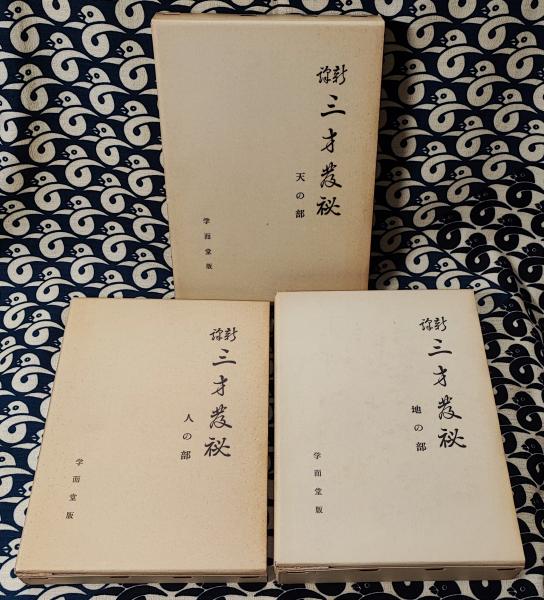 新訳
三才發秘
天の部
学而堂版
新訳
三才發秘
人の部
学而堂版
新訳
三才發秘
地の部
学而堂版